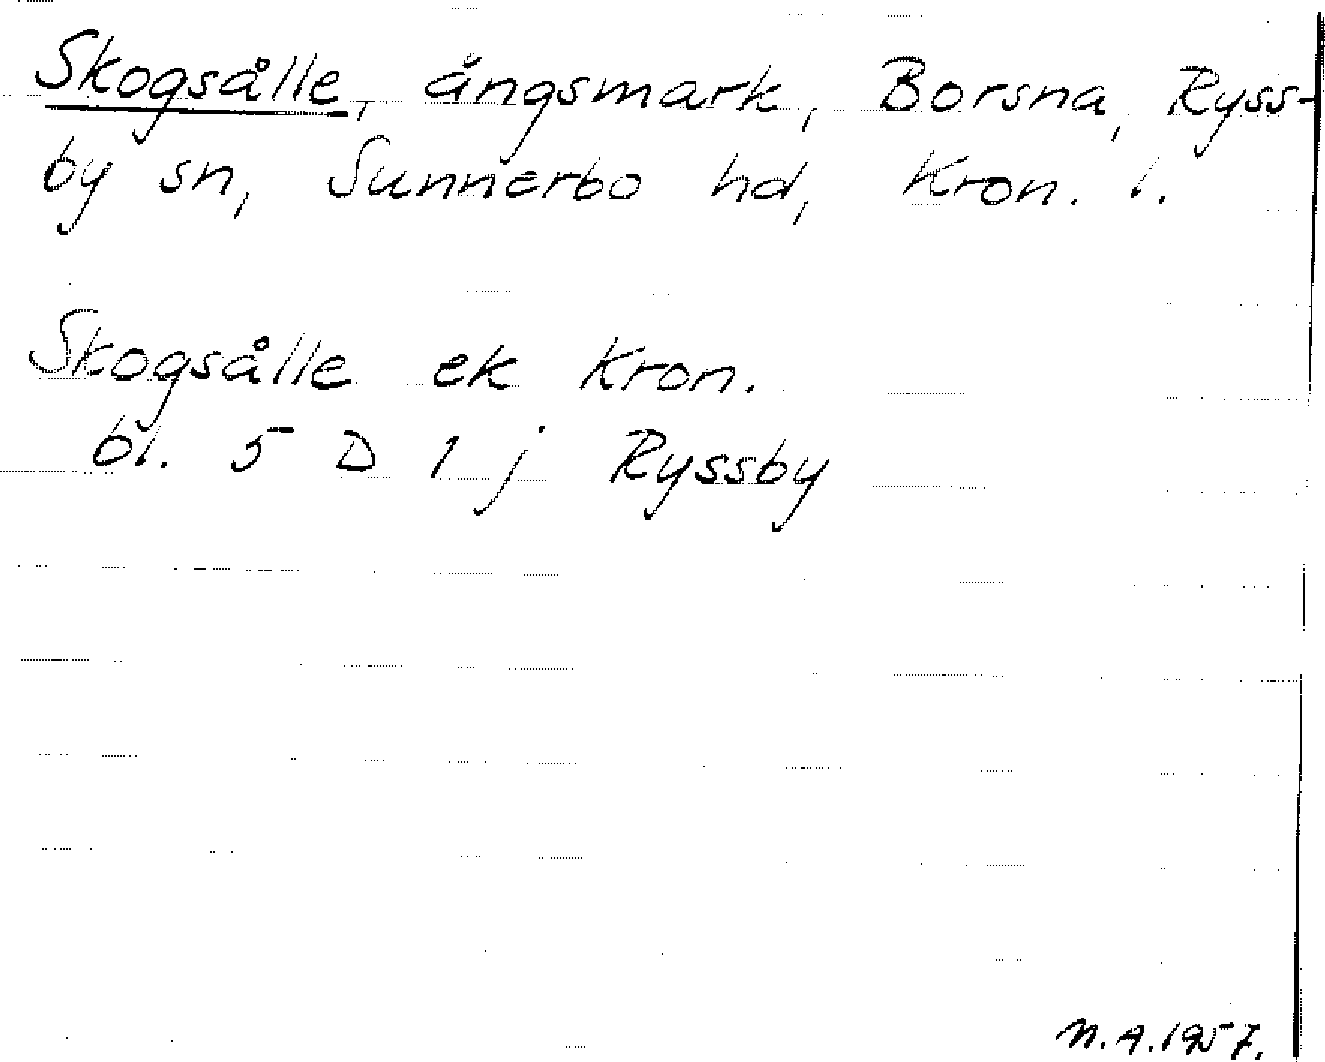 Skogsålle, ängsmark, Borsna, Ryss-
by sn, Sunnerbo hd, Kron. l.
Skogsålle ek Kron.
bl. 5 D 1 j Ryssby
N.A. 1957.